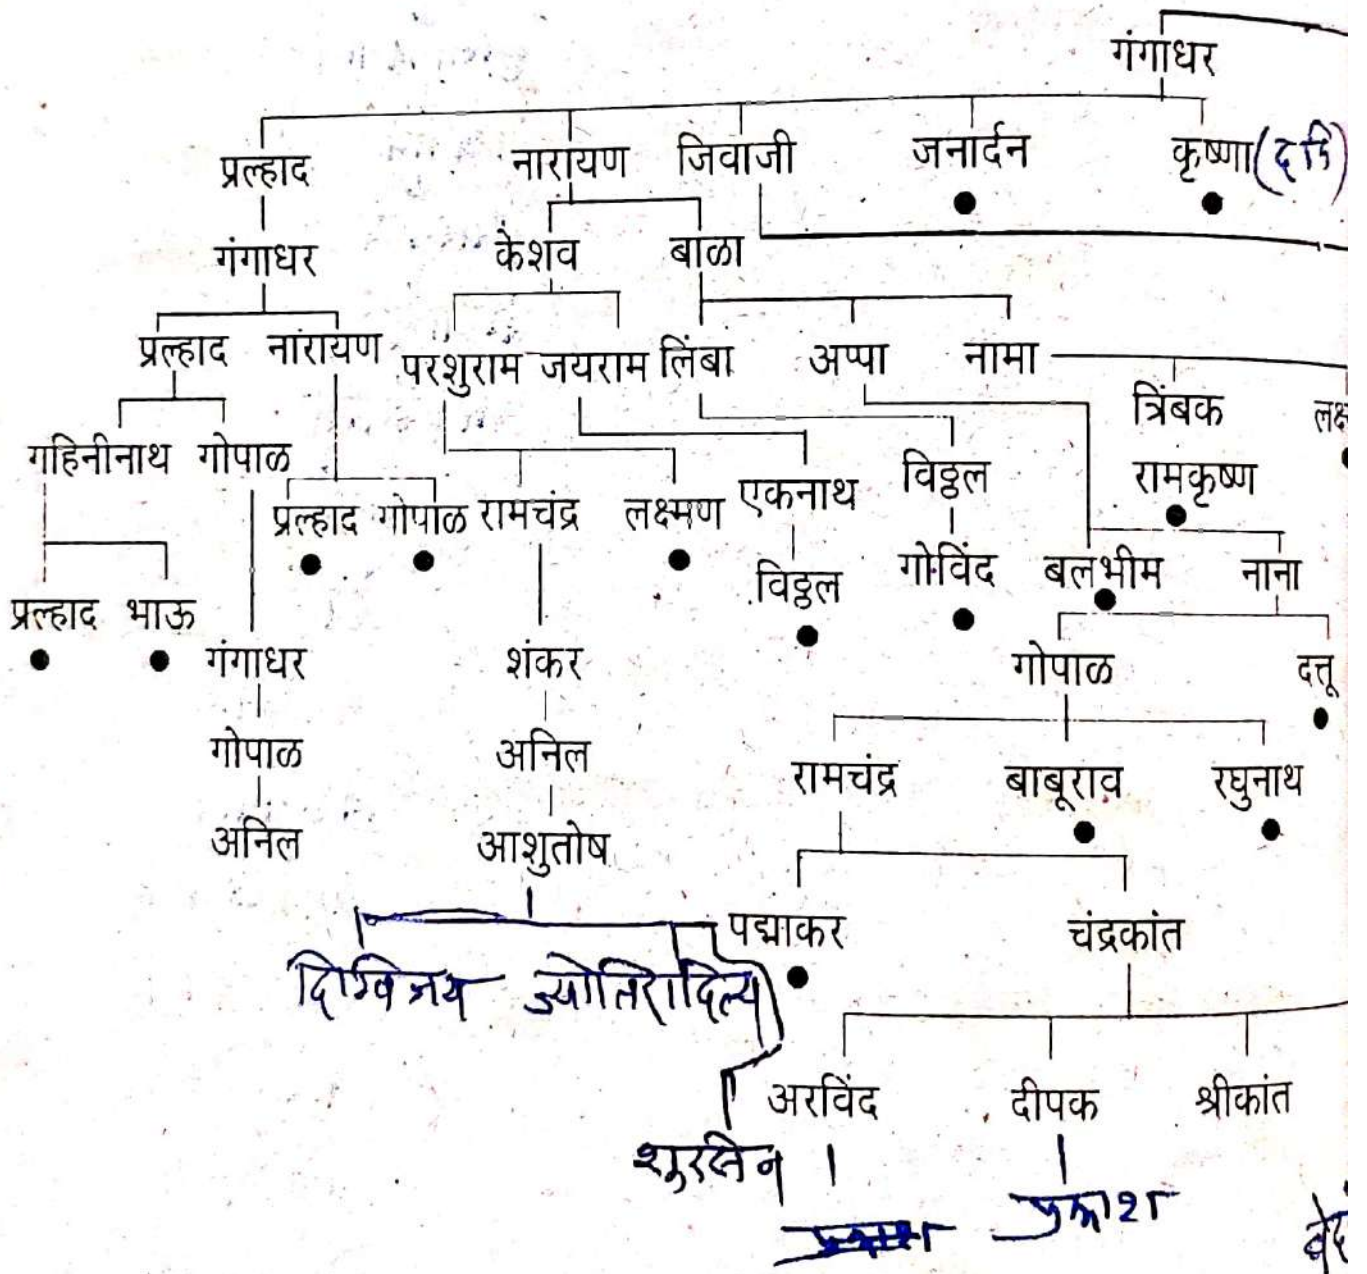 गंगाधर
प्रल्हाद नारायण जिवाजी जनार्दन कृष्णा
गंगाधर केशव बाळा
प्रल्हाद नारायण परशुराम जयराम लिंबा अप्पा नामा
त्रिंबक
गहिनीनाथ गोपाळ
विठ्ठल रामकृष्ण
प्रल्हाद गोपाळ रामचंद्र लक्ष्मण एकनाथ
विठ्ठल गोविंद बलभीम नाना
प्रल्हाद भाऊ
गंगाधर शंकर गोपाळ दत्तू
गोपाळ अनिल रामचंद्र बाबूराव रघुनाथ
अनिल आशुतोष
पद्माकर चंद्रकांत
दिग्विजय ज्योतिरादित्य
अरविंद दीपक श्रीकांत
शुरसेन
प्रकाश